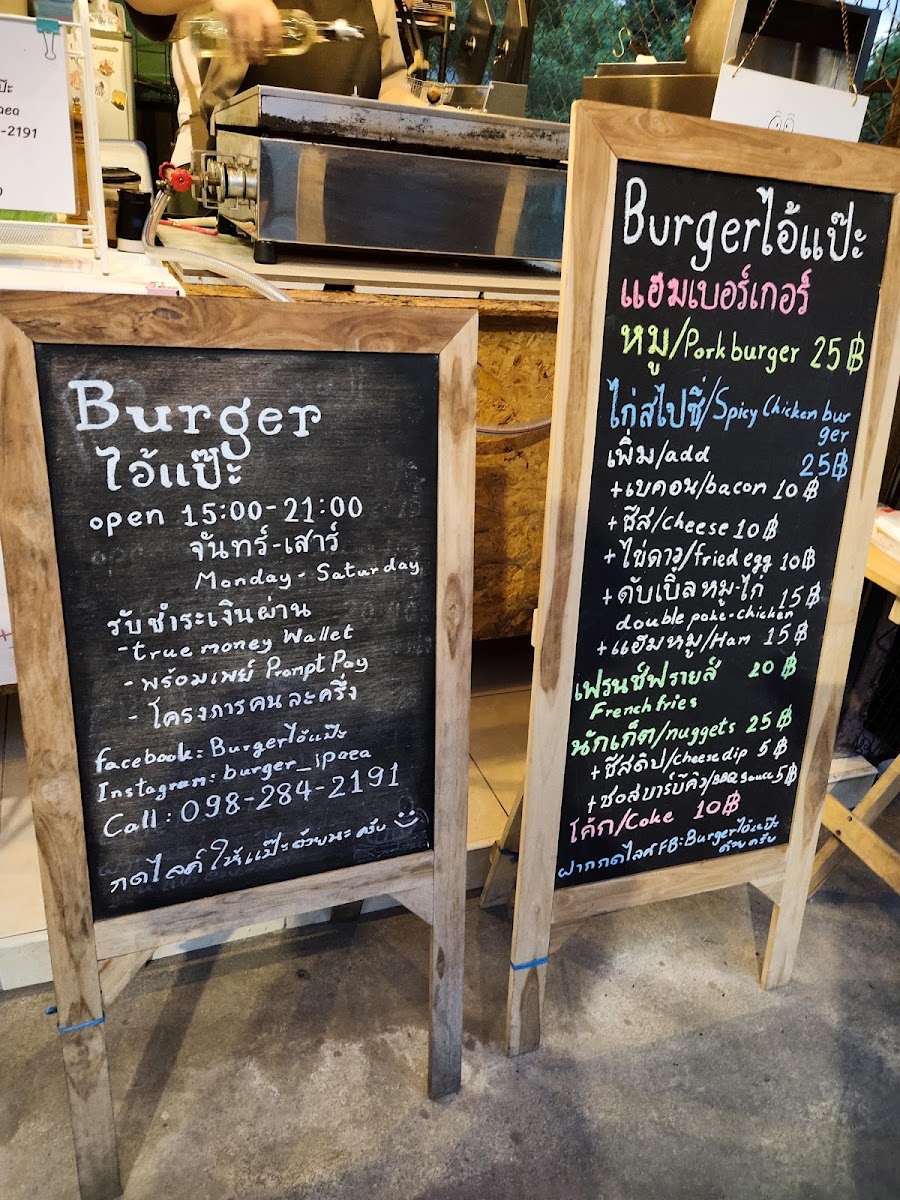 -2191
Burger
ไอ้แป๊ะ
open 15:00-21:00
จันทร์-เสาร์
Monday - Saturday
รับชำระเงินผ่าน
-true money Wallet
- พร้อมเพย์ Prompt Pay
- โครงการคนละครึ่ง
facebook: Burgerไอ้แป๊ะ
Instagram: burger_ipaea
Call: 098-284-2191
กดไลค์ให้แป๊ะด้วยนะครับ
Burgerไอ้แป๊ะ
แฮมเบอร์เกอร์
หมู/Pork burger 25฿
ไก่สไปซี่/Spicy Chicken bur
ger
25฿
เพิ่ม/add
+เบคอน/bacon 10฿
+ชีส/cheese 10฿
+ไข่ดาว/fried egg 10฿
+ดับเบิ้ลหมู-ไก่ 15฿
double poke-chicken
+แฮมหมู/Ham 15฿
เฟรนช์ฟรายส์ 20฿
French fries
นักเก็ต/nuggets 25฿
+ชีสดิป/Cheese dip 5฿
+ซอสบาร์บีคิว/BBQ Sauce 5฿
โค้ก/Coke 10฿
ฝากกดไลค์ FB:Burgerไอ้แป๊ะ
ด้วยครับ